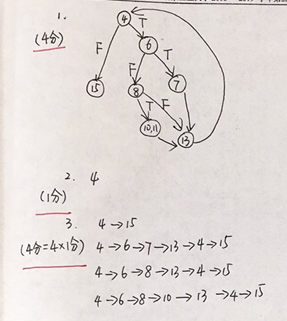 1.
(4分)
4
T
F
6
T
F
15
8
7
T
F
10,11
13
2. 4
(1分)
3. 4→15
(4分=4×1分) 4→6→7→13→4→15
4→6→8→13→4→15
4→6→8→10→13→4→15